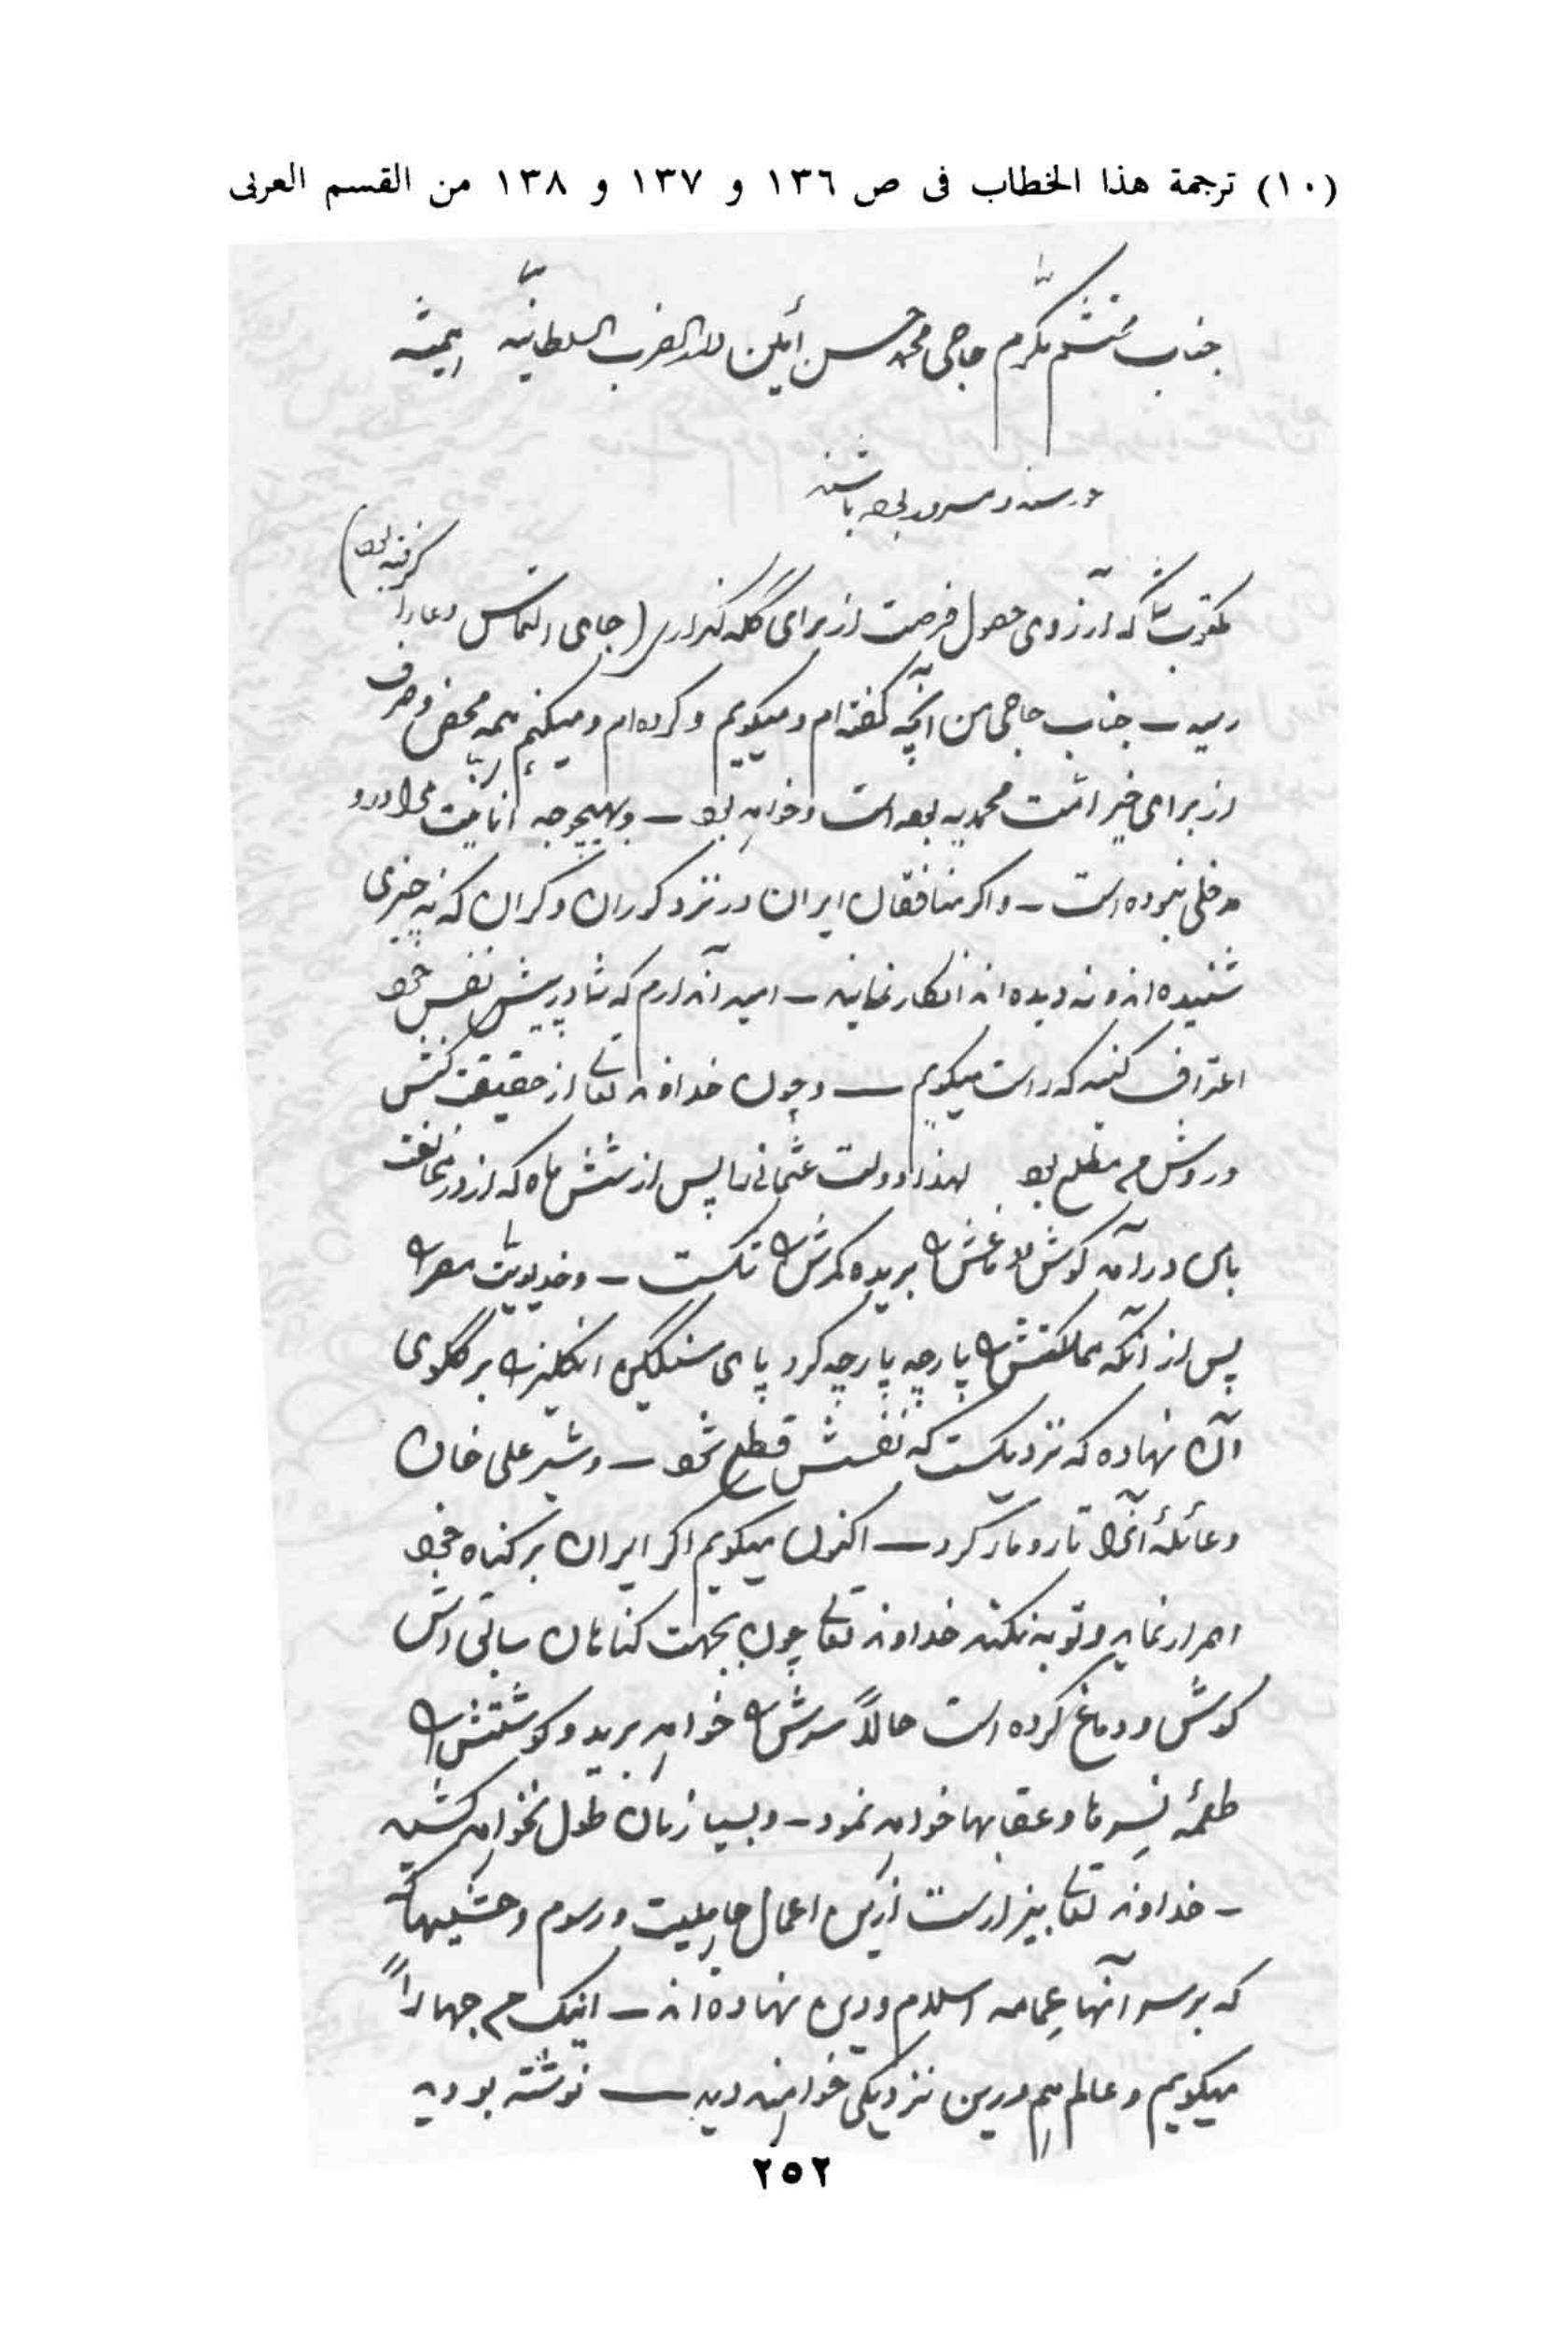 (١٠) ترجمة هذا الخطاب فى ص ١٣٦ و ١٣٧ و ١٣٨ من القسم العربى
جناب محتشم مكرم حاجى محمد حسن أمين دار الضرب السلطانيّه هميشه
خورسند و مسرور بوده باشند
مكتوب شما كه آرزوى حصول فرصت از براى گله گذارى (جاى التماس دعا را گرفته بود)
رسيد – جناب حاجى من آنچه گفته ام و ميكويم و كرده ام و ميكنم همه محض و صرف
از براى خير امّت محمديه بوده است و خواهد بود – و بهيچوجه انانيّت مرا درو
مدخلى نبوده است – و اكر منافقان ايران در نزد كوران و كران كه نه چيزى
شنيده اند و نه ديده اند انكار نمايند – اميد آن دارم كه شما در پيش نفس خود
اعتراف كنيد كه راست ميكويم – و چون خداوند تعالى از حقيقت كنش
و روش من مطلع بود لهذا دولت عثمانى را پس از شش ماه كه از در مخالفت
با من در آمد كوش و دماغش را بريده كمرش را شكست – و خديويّت مصر را
پس از آنكه مملكتش را پارچه پارچه كرد پاى سنگين انكليز را بر گلوى
آن نهاده كه نزديكست كه نفسش قطع شود – و شير على خان
و عائلهٔ آن را تار و مار كرد – اكنون ميكويم اكر ايران بر كناه خود
اصرار نمايد و توبه نكند خداوند تعالى چون بجهت كناهان سابق اش
كوش و دماغ كرده است حالاً سرش را خواهد بريد و كوشتش را
طعمهٔ نسرها و عقابها خواهد نمود – و بسيار زمان طول نخواهد كشيد
– خداوند تعالى بيزارست ازين اعمال جاهليت و رسوم وحشيها
كه بر سر آنها عمامه اسلام و دين نهاده اند – اينك من جهاراً
ميكويم و عالم هم درين نزديكى خواهند ديد – نوشته بوديد
٢٥٢